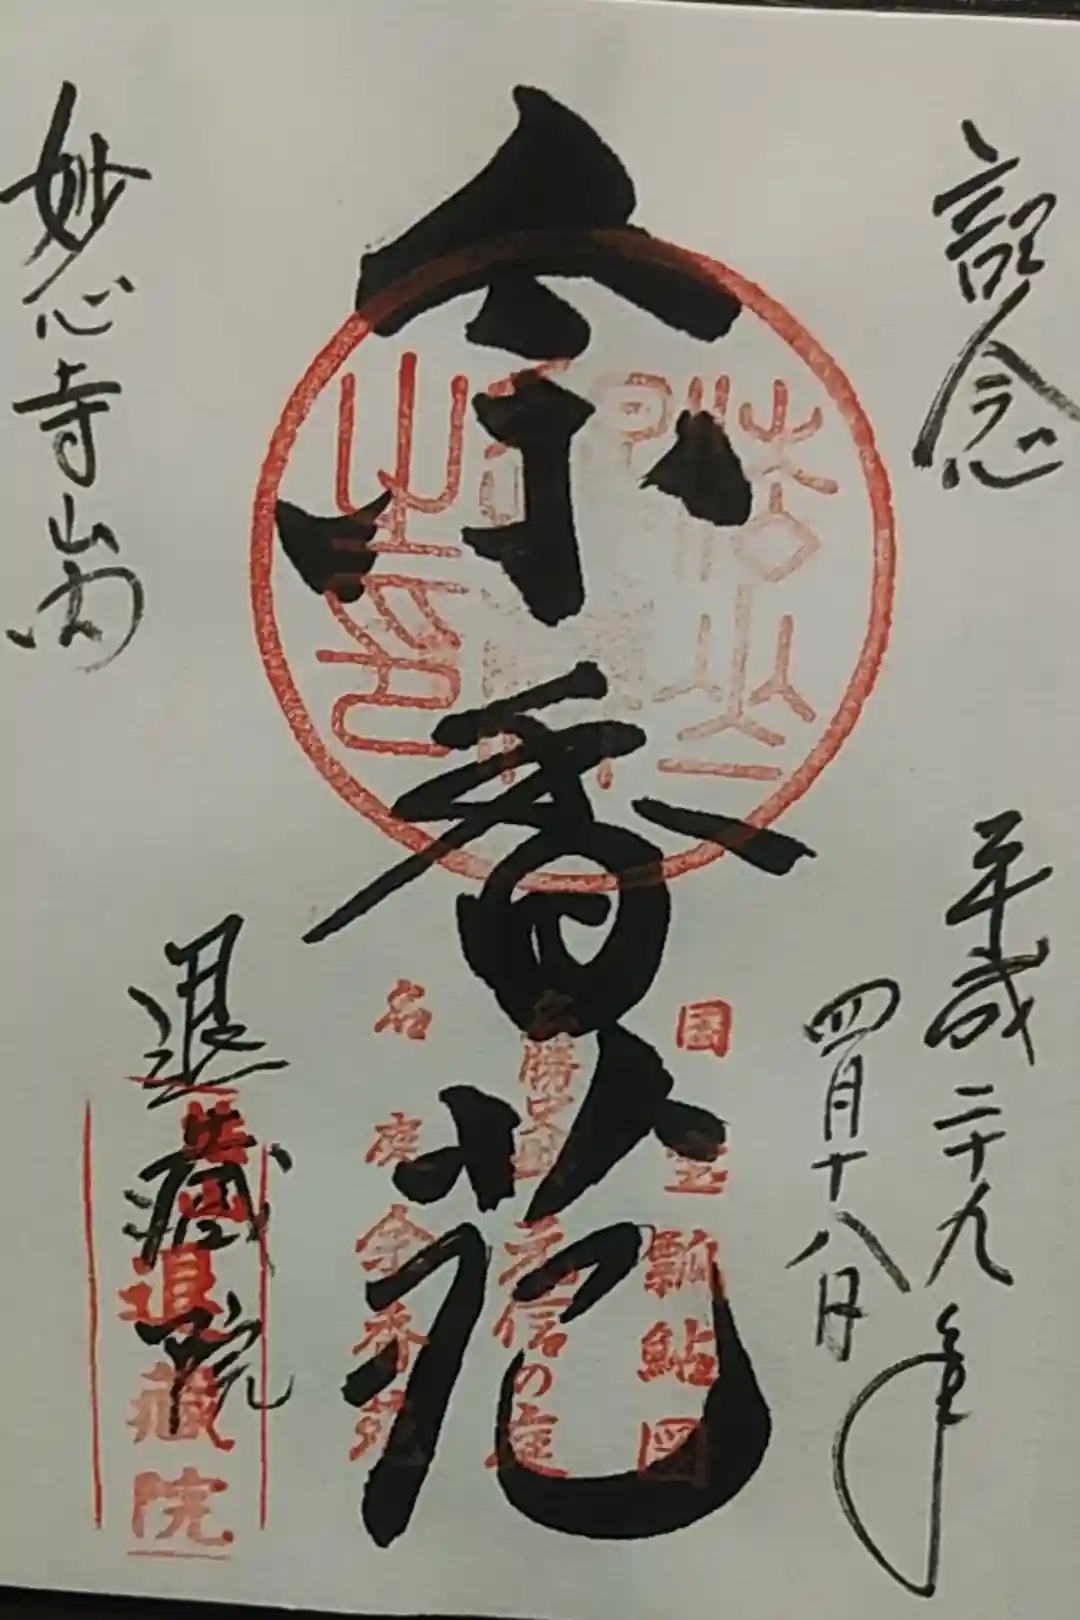 記念
平成二十九年
四月十八日
余香苑
国宝瓢鮎図
名勝史蹟元信の庭
名庭余香苑
妙心寺山内
退蔵院
法山退蔵院